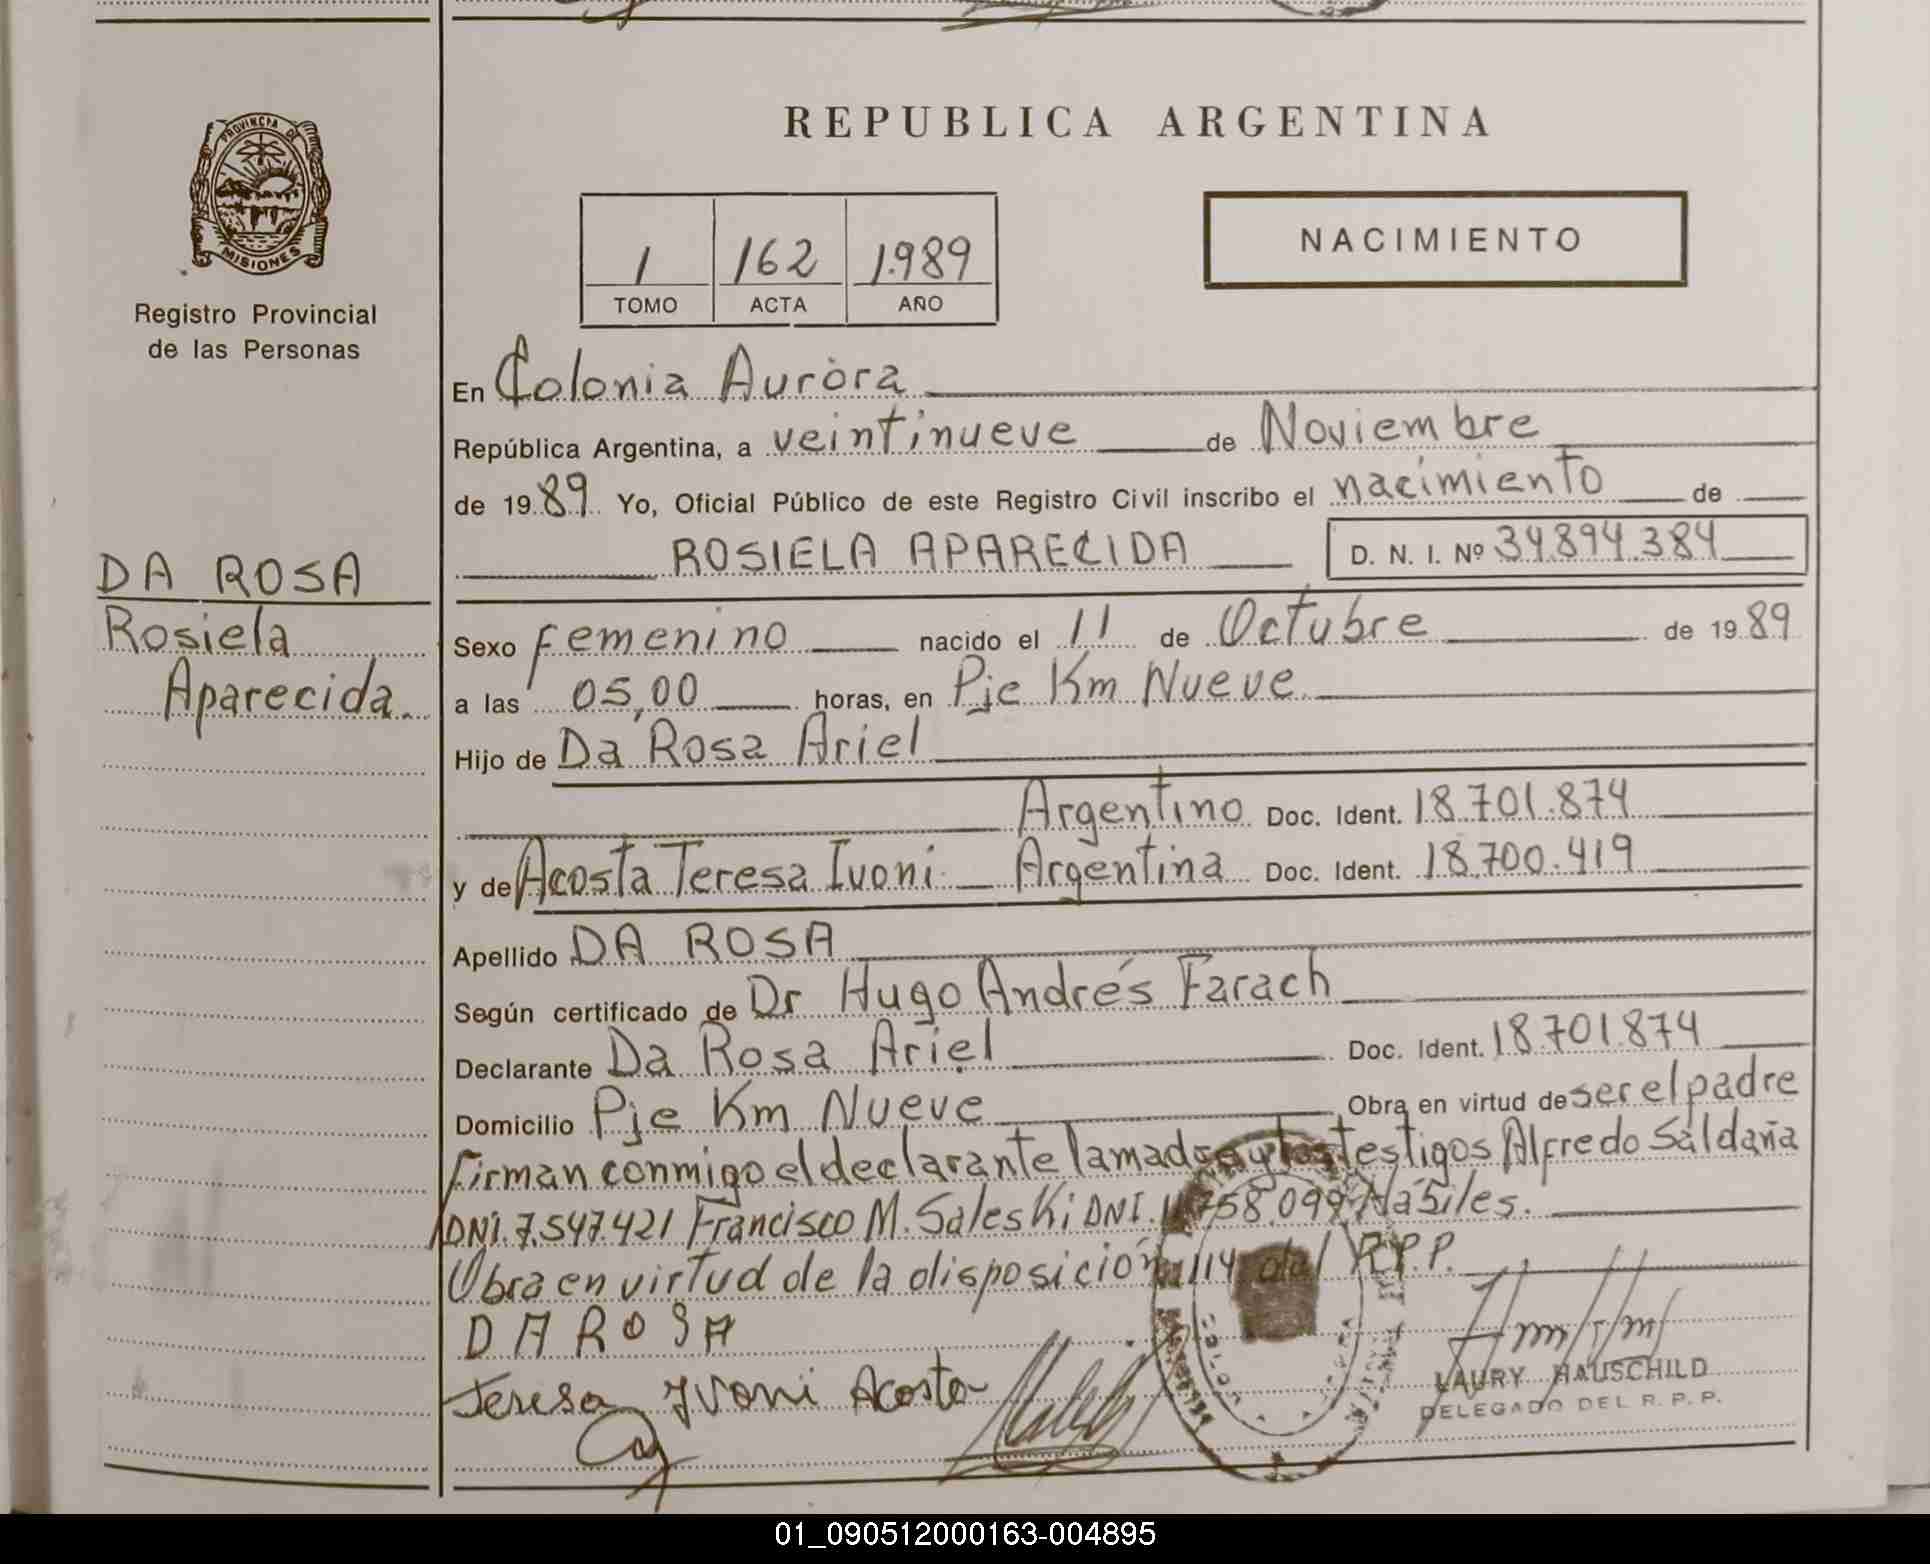 PROVINCIA DE
MISIONES
Registro Provincial
de las Personas
DA ROSA
Rosiela
Aparecida.
REPUBLICA ARGENTINA
1 162 1.989
TOMO ACTA AÑO
NACIMIENTO
En Colonia Aurora
República Argentina, a veintinueve de Noviembre
de 19 89 Yo, Oficial Público de este Registro Civil inscribo el nacimiento de
ROSIELA APARECIDA D. N. I. Nº 34.894.384
Sexo Femenino nacido el 11 de Octubre de 19 89
a las 05,00 horas, en Pje Km Nueve
Hijo de Da Rosa Ariel
Argentino Doc. Ident. 18.701.874
y de Acosta Teresa Ivoni Argentina Doc. Ident. 18.700.419
Apellido DA ROSA
Según certificado de Dr Hugo Andrés Farach
Declarante Da Rosa Ariel Doc. Ident. 18.701.874
Domicilio Pje Km Nueve Obra en virtud de ser el padre
firman conmigo el declarante la madre y los testigos Alfredo Saldaña
DNI. 7.547.421 Francisco M. Saleski DNI. 758.099 Hábiles.
Obra en virtud de la disposición 114 del R.P.P.
DA ROSA
Teresa Ivoni Acosta
LAURY HAUSCHILD
DELEGADO DEL R. P. P.
01_090512000163-004895